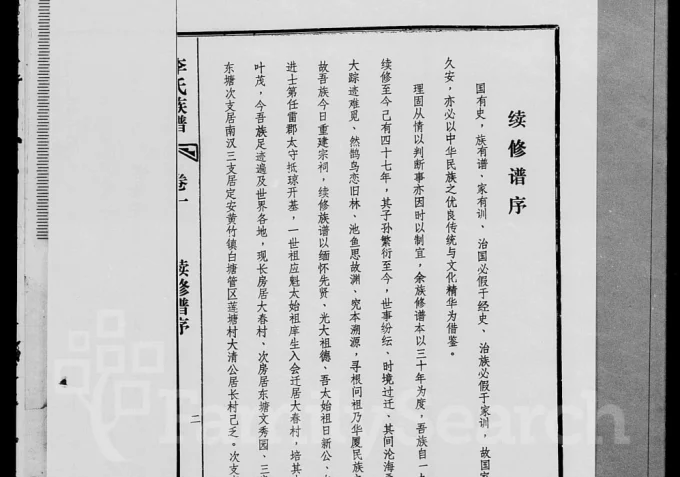 续修谱序
国有史，族有谱、家有训、治国必假于经史、治族必假于家训，故国家
久安，亦必以中华民族之优良传统与文化精华为借鉴。
理固从情以判断事亦因时以制宜，余族修谱本以三十年为度，吾族自一九
续修至今己有四十七年，其子孙繁衍至今，世事纷纭、时境过迁、其间沧海
大踪迹难见、然鹊鸟恋旧林、池鱼思故渊、究本溯源，寻根问祖乃华厦民族
故吾族今日重建宗祠，续修族谱以缅怀先贤、光大祖德、吾太始祖日新公、
进士第任雷郡太守抵琼开基，一世祖应魁太始祖庠生入会迁居大春村，培其
叶茂，今吾族足迹遍及世界各地，现长房居大春村、次房居东塘文秀园、三
东塘次支居南汉三支居定安黄竹镇白塘管区莲塘村大清公居长村己乏。次支
李氏族谱
卷一
续修谱序
二
FamilySearch